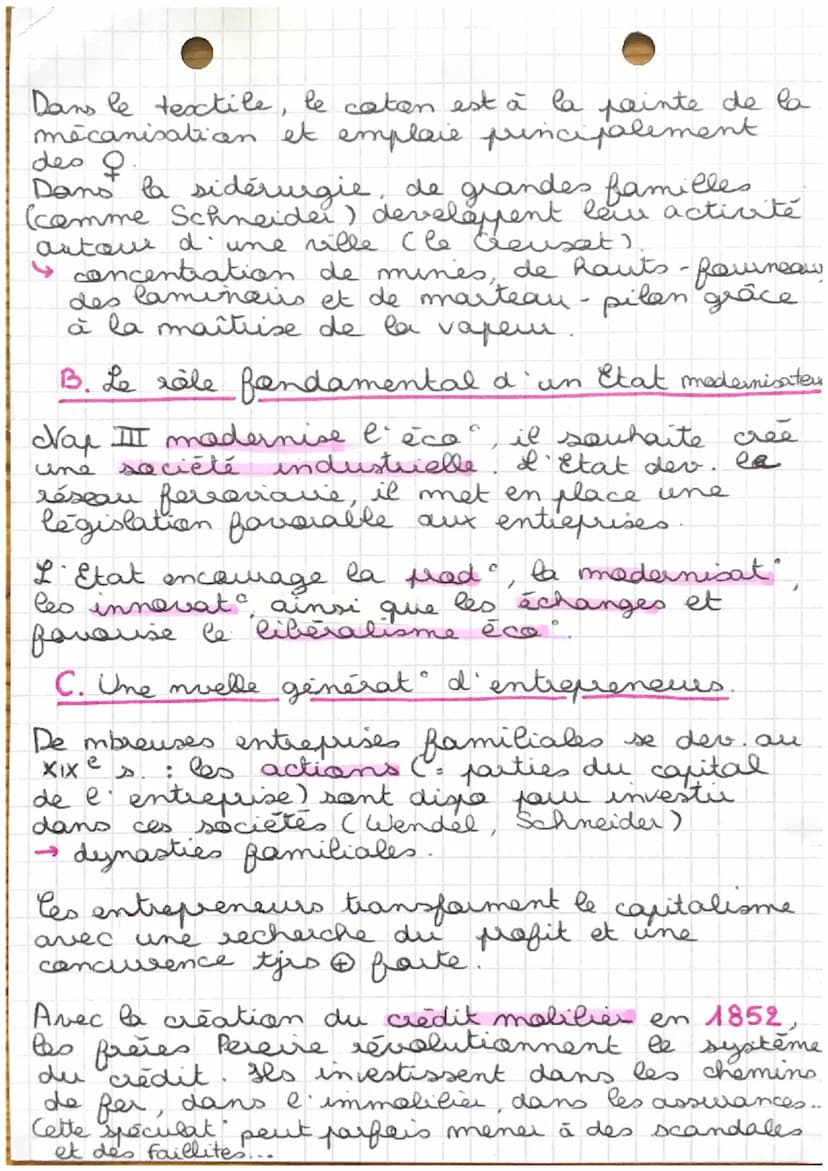 Dans le textile, le coton est à la pointe de la
mécanisation et emploie principalement
des ♀.
Dans la sidérurgie, de grandes familles
(comme Schneider) developpent leur activité
autour d'une ville (le Creusot).
↳ concentration de mines, de hauts-fourneaux
des laminoirs et de marteau-pilon grâce
à la maîtrise de la vapeur.
B. Le rôle fondamental d'un Etat modernisateur
Nap III modernise l'éco°, il souhaite créé
une société industrielle. L'Etat dev. le
réseau ferroviaire, il met en place une
législation favorable aux entreprises.
L'Etat encourage la prod°, la modernisat°,
les innovat°, ainsi que les échanges et
favorise le libéralisme éco°.
C. Une nvelle générat° d'entrepreneurs.
De mbreuses entreprises familiales se dev. au
XIXe s. : les actions (= parties du capital
de l'entreprise) sont dispo pour investir
dans ces sociétés (Wendel, Schneider)
→ dynasties familiales.
Ces entrepreneurs transforment le capitalisme
avec une recherche du profit et une
concurrence tjrs ⊕ forte.
Avec la création du crédit mobilier en 1852,
les frères Pereire révolutionnent le système
du crédit. Ils investissent dans les chemins
de fer, dans l'immobilier, dans les assurances..
Cette spéculat° peut parfois mener à des scandales
et des faillites...